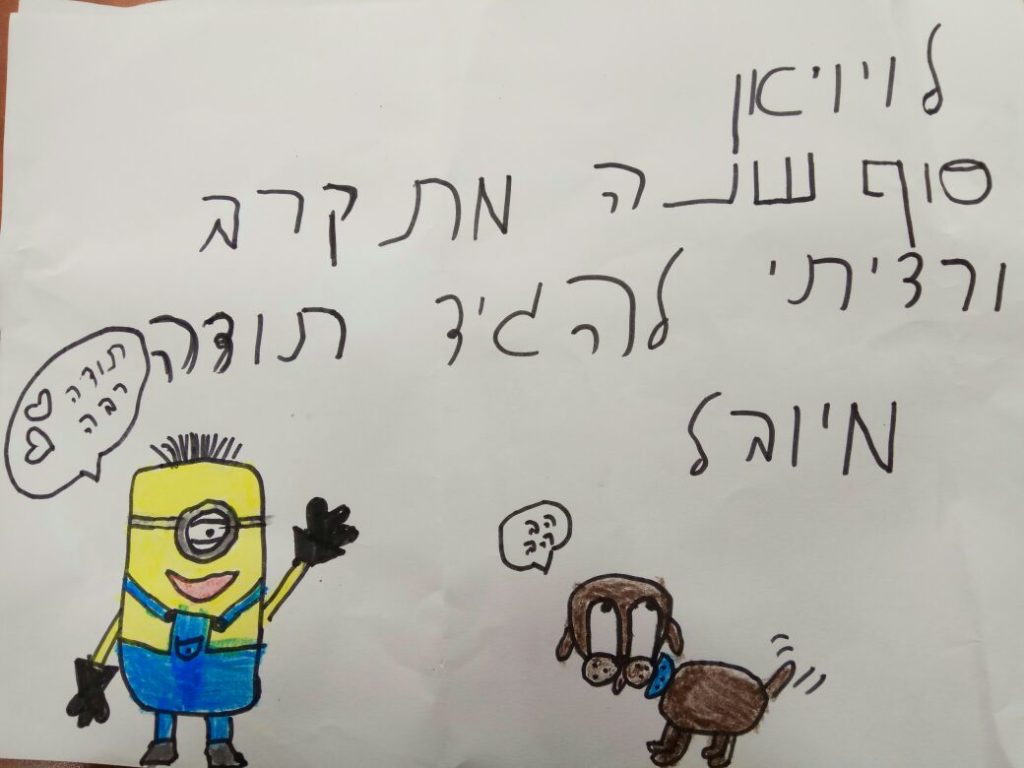 לויויאן
סוף שנה מתקרב
ורציתי להגיד תודה
מיובל
תודה
רבה
הב
הב